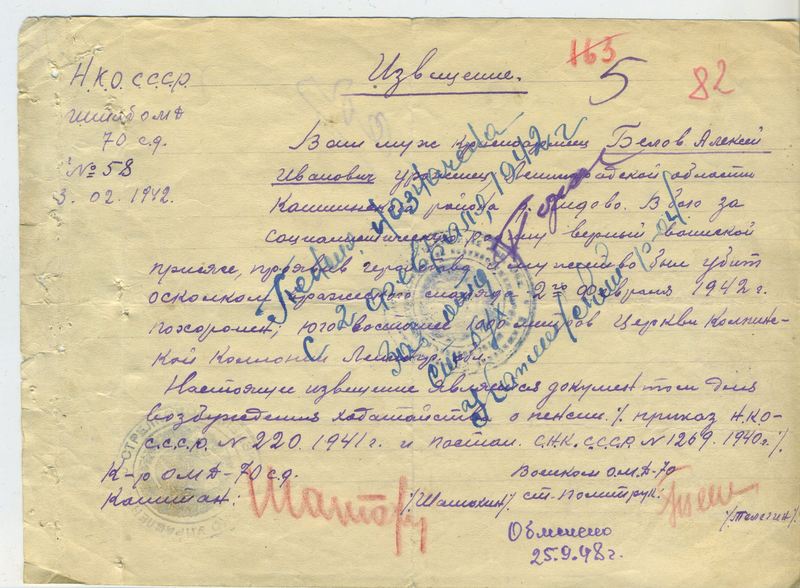 Н.К.О. С.С.С.Р.
Извещение.
163
5
82
штаб ОМД
70 с.д.
№ 58
3. 02. 1942.
Ваш муж красноармеец Белов Алексей
Иванович уроженец Ленинградской области
района д. В бою за
социалистическую родину верный воинской
присяге, проявив геройство и мужество был убит
осколком вражеского снаряда 2го февраля 1942 г.
похоронен; юго восточнее метров Церкви Колпинс-
кой Коллонии Ленингр. обл.
Пенсия назначена
с 2 февраля 1942 г
Настоящее извещение является документом для
возбуждения ходатайства о пенсии /. приказ Н.К.О-
С.С.С.Р. № 220. 1941 г. и постан. С.Н.К. С.С.С.Р № 1269. 1940г. /.
К-р ОМД-70 с.д.
Капитан:
Военком ОМД-70
ст. политрук:
Обменено
25.9.48 г.